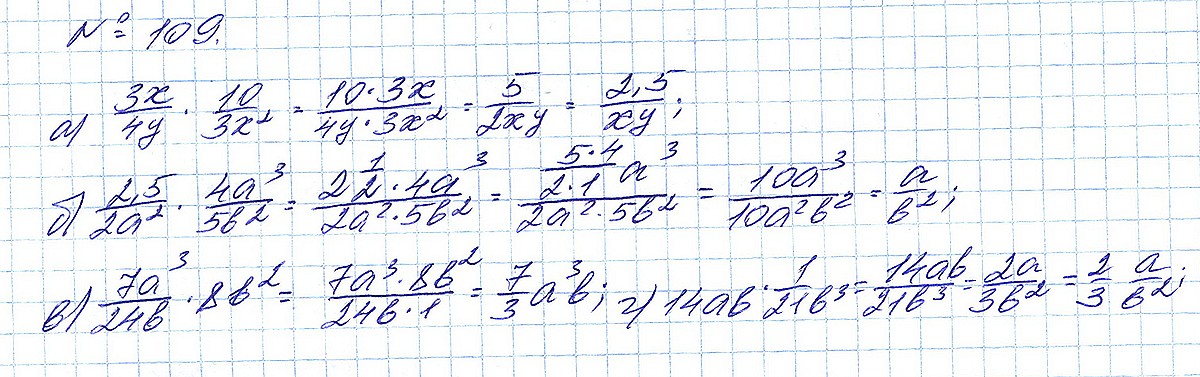 № 109.
а) 3x/4y · 10/3x² = 10·3x/4y·3x² = 5/2xy = 2,5/xy;
б) 2,5/2a² · 4a³/5b² = 2 1/2·4a³/2a²·5b² = 5·4/2·1 a³/2a²·5b² = 10a³/10a²b² = a/b²;
в) 7a³/24b · 8b² = 7a³·8b²/24b·1 = 7/3 a³b; г) 14ab · 1/21b³ = 14ab/21b³ = 2a/3b² = 2/3 a/b²;